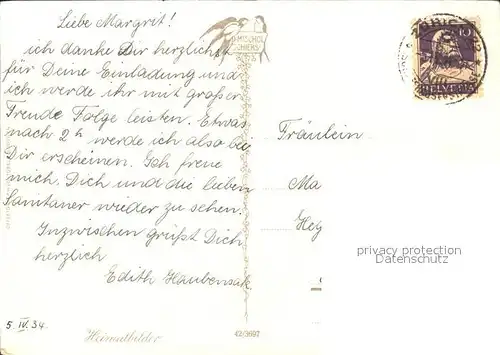 Liebe Margrit!
ich danke Dir herzlichst
für Deine Einladung und
ich werde ihr mit großer
Freude Folge leisten. Etwas
nach 2h werde ich also bei
Dir erscheinen. Ich freue
mich, Dich und die lieben
Sanitaner wieder zu sehen.
Inzwischen grüßt Dich
herzlich
Edith Haubensak
5. IV. 34.
Heimatbilder
42/3697
Fräulein
Ma
Heg
10
HELVETIA
ZÜRICH
privacy protection
Datenschutz